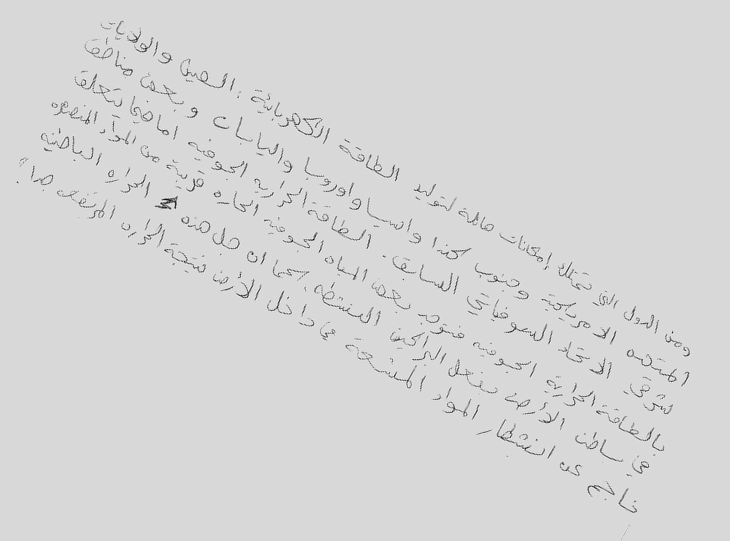 ومن الدول التي تمتلك إمكانات هائلة لتوليد الطاقة الكهربائية : الصين والولايات
المتحده الامريكية وجنوب كندا واسيا واوروبا واليابان وبعض مناطق
شرقي الاتحاد السوفياتي السابق. الطاقة الحراريه الجوفيه اما فيما يتعلق
بالطاقة الحرارية الجوفيه فتوجد بعض المياه الجوفيه الحاره قريبة من المواد المنصهره
في باطن الأرض بفعل البراكين النشطه، كما ان جل هذه الحراره الباطنيه
ناجم عن انشطار المواد المشعة في داخل الأرض نتيجة الحراره المرتفعه جداً.